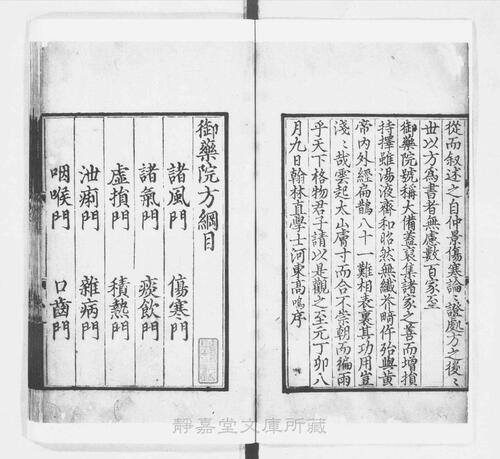 從而叙述之自仲景傷寒論〻證處方之後〻
世以方爲書者無慮數百家至
御藥院號稱大備蓋裒集諸家之善而增損
持擇雖湯液齊和昭然無纖芥畸仵殆與黃
帝内外經扁鵲八十一難相表裏其功用豈
淺〻哉雲起太山膚寸而合不崇朝而徧雨
乎天下格物君子請以是觀之至元丁卯八
月九日翰林直學士河東高鳴序
御藥院方綱目
諸風門 傷寒門
諸氣門 痰飲門
虛損門 積熱門
泄痢門 雜病門
咽喉門 口齒門
靜嘉堂文庫所藏